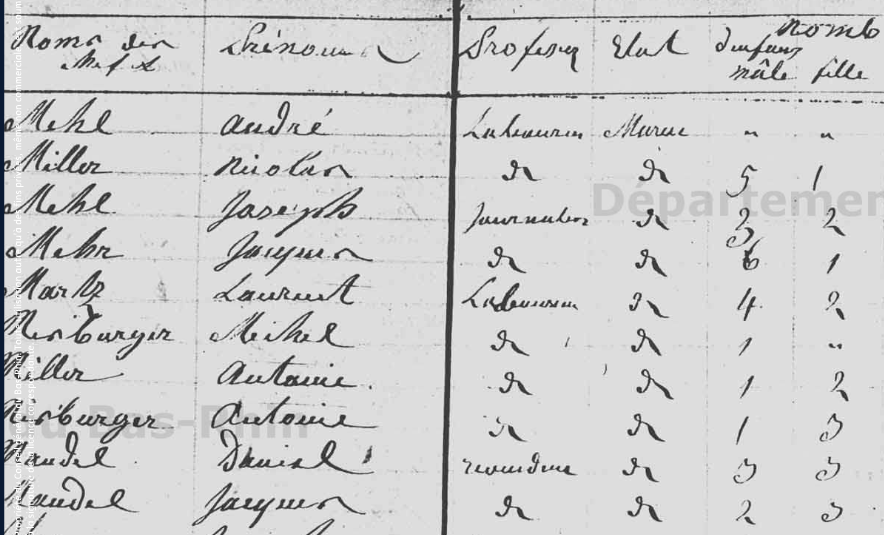 Noms des Chefs Prénoms Profession Etat Nomb
d'enfans
mâle fille
Mehl André Laboureur Marié " "
Miller Nicolas do do 5 1
Mehl Joseph Journalier do 3 2
Mehr Jacques do do 6 1
Martz Laurent Laboureur do 4 2
Michel do do 1 "
Miller Antoine do do 1 2
Antoine do do 1 3
Mandel Daniel do 3 3
Mandel Jacques do do 2 3
Départemen
Bas-Rhin